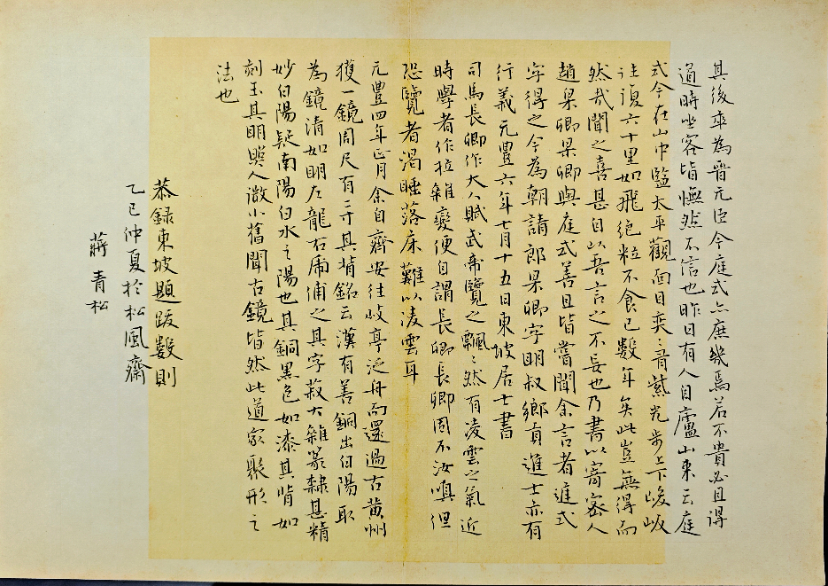 其後卒為晉元臣今庭式亦庶幾焉若不貴必且得
道時坐客皆憮然不信也昨日有人自廬山來云庭
式今在山中監太平觀面目奕〻有紫光步上下峻岅
往復六十里如飛絕粒不食已數年矣此豈無得而
然哉聞之喜甚自以吾言之不妄也乃書以寄密人
趙杲卿杲卿與庭式善且皆嘗聞余言者庭式
字得之今為朝請郎杲卿字明叔鄉貢進士亦有
行義元豐六年七月十五日東坡居士書
司馬長卿作大人賦武帝覽之飄〻然有凌雲之氣近
時學者作拉雜變便自謂長卿長卿固不汝嗔但
恐覽者渴睡落床難以凌雲耳
元豐四年正月余自齊安往岐亭泛舟而還過古黃州
獲一鏡周尺有二寸其背銘云漢有善銅出白陽取
為鏡清如明左龍右虎俌之其字菽大雜篆隸甚精
妙白陽疑南陽白水之陽也其銅黑色如漆其背如
刻玉其明照人微小舊聞古鏡皆然此道家聚形之
法也
恭錄東坡題跋數則
乙巳仲夏於松風齋
蔣青松